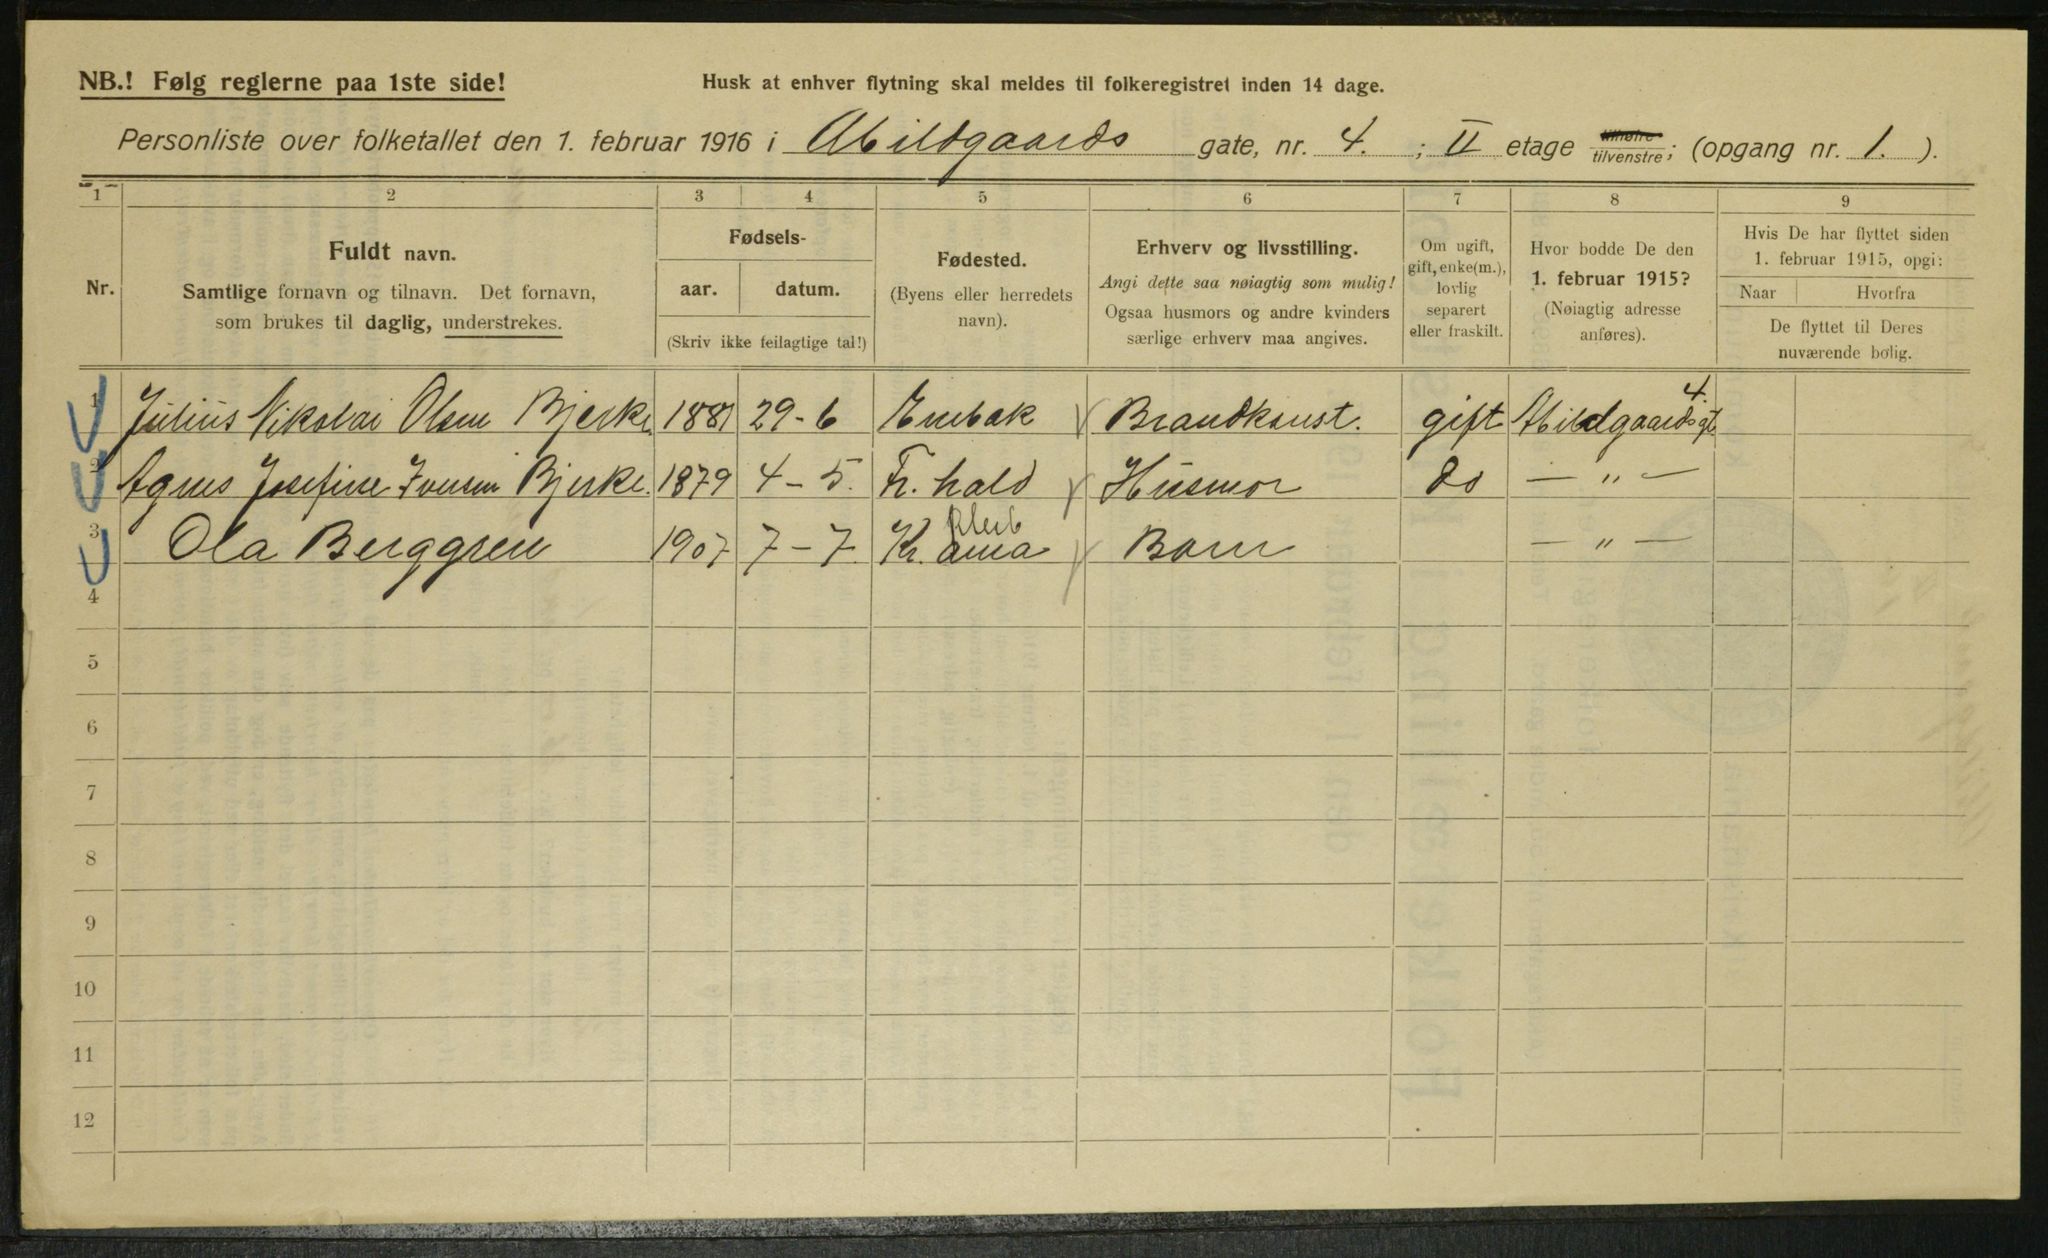 NB.! Følg reglerne paa 1ste side!
Husk at enhver flytning skal meldes til folkeregistret inden 14 dage.
Personliste over folketallet den 1. februar 1916 i Abildgaards gate, nr. 4. ; II etage tilhøire tilvenstre; (opgang nr. 1. ).
1 2 3 4 5 6 7 8 9
Nr.
Fuldt navn.
Samtlige fornavn og tilnavn. Det fornavn,
som brukes til daglig, understrekes.
Fødsels-
aar. datum.
(Skriv ikke feilagtige tal!)
Fødested.
(Byens eller herredets
navn).
Erhverv og livsstilling.
Angi dette saa nøiagtig som mulig!
Ogsaa husmors og andre kvinders
særlige erhverv maa angives.
Om ugift,
gift, enke(m.),
lovlig
separert
eller fraskilt.
Hvor bodde De den
1. februar 1915?
(Nøiagtig adresse
anføres).
Hvis De har flyttet siden
1. februar 1915, opgi:
Naar Hvorfra
De flyttet til Deres
nuværende bolig.
1 Julius Nikolai Olsen Bjerke 1881 29-6 Enebak Brandkonst. gift Abildgaardsgt 4.
2 Agnes Josefine Iversen Bjerke. 1879 4-5. Fr. hald Husmor do — " —
3 Ola Berggren 1907 7-7. Kr. ania Barn — " —
4
5
6
7
8
9
10
11
12